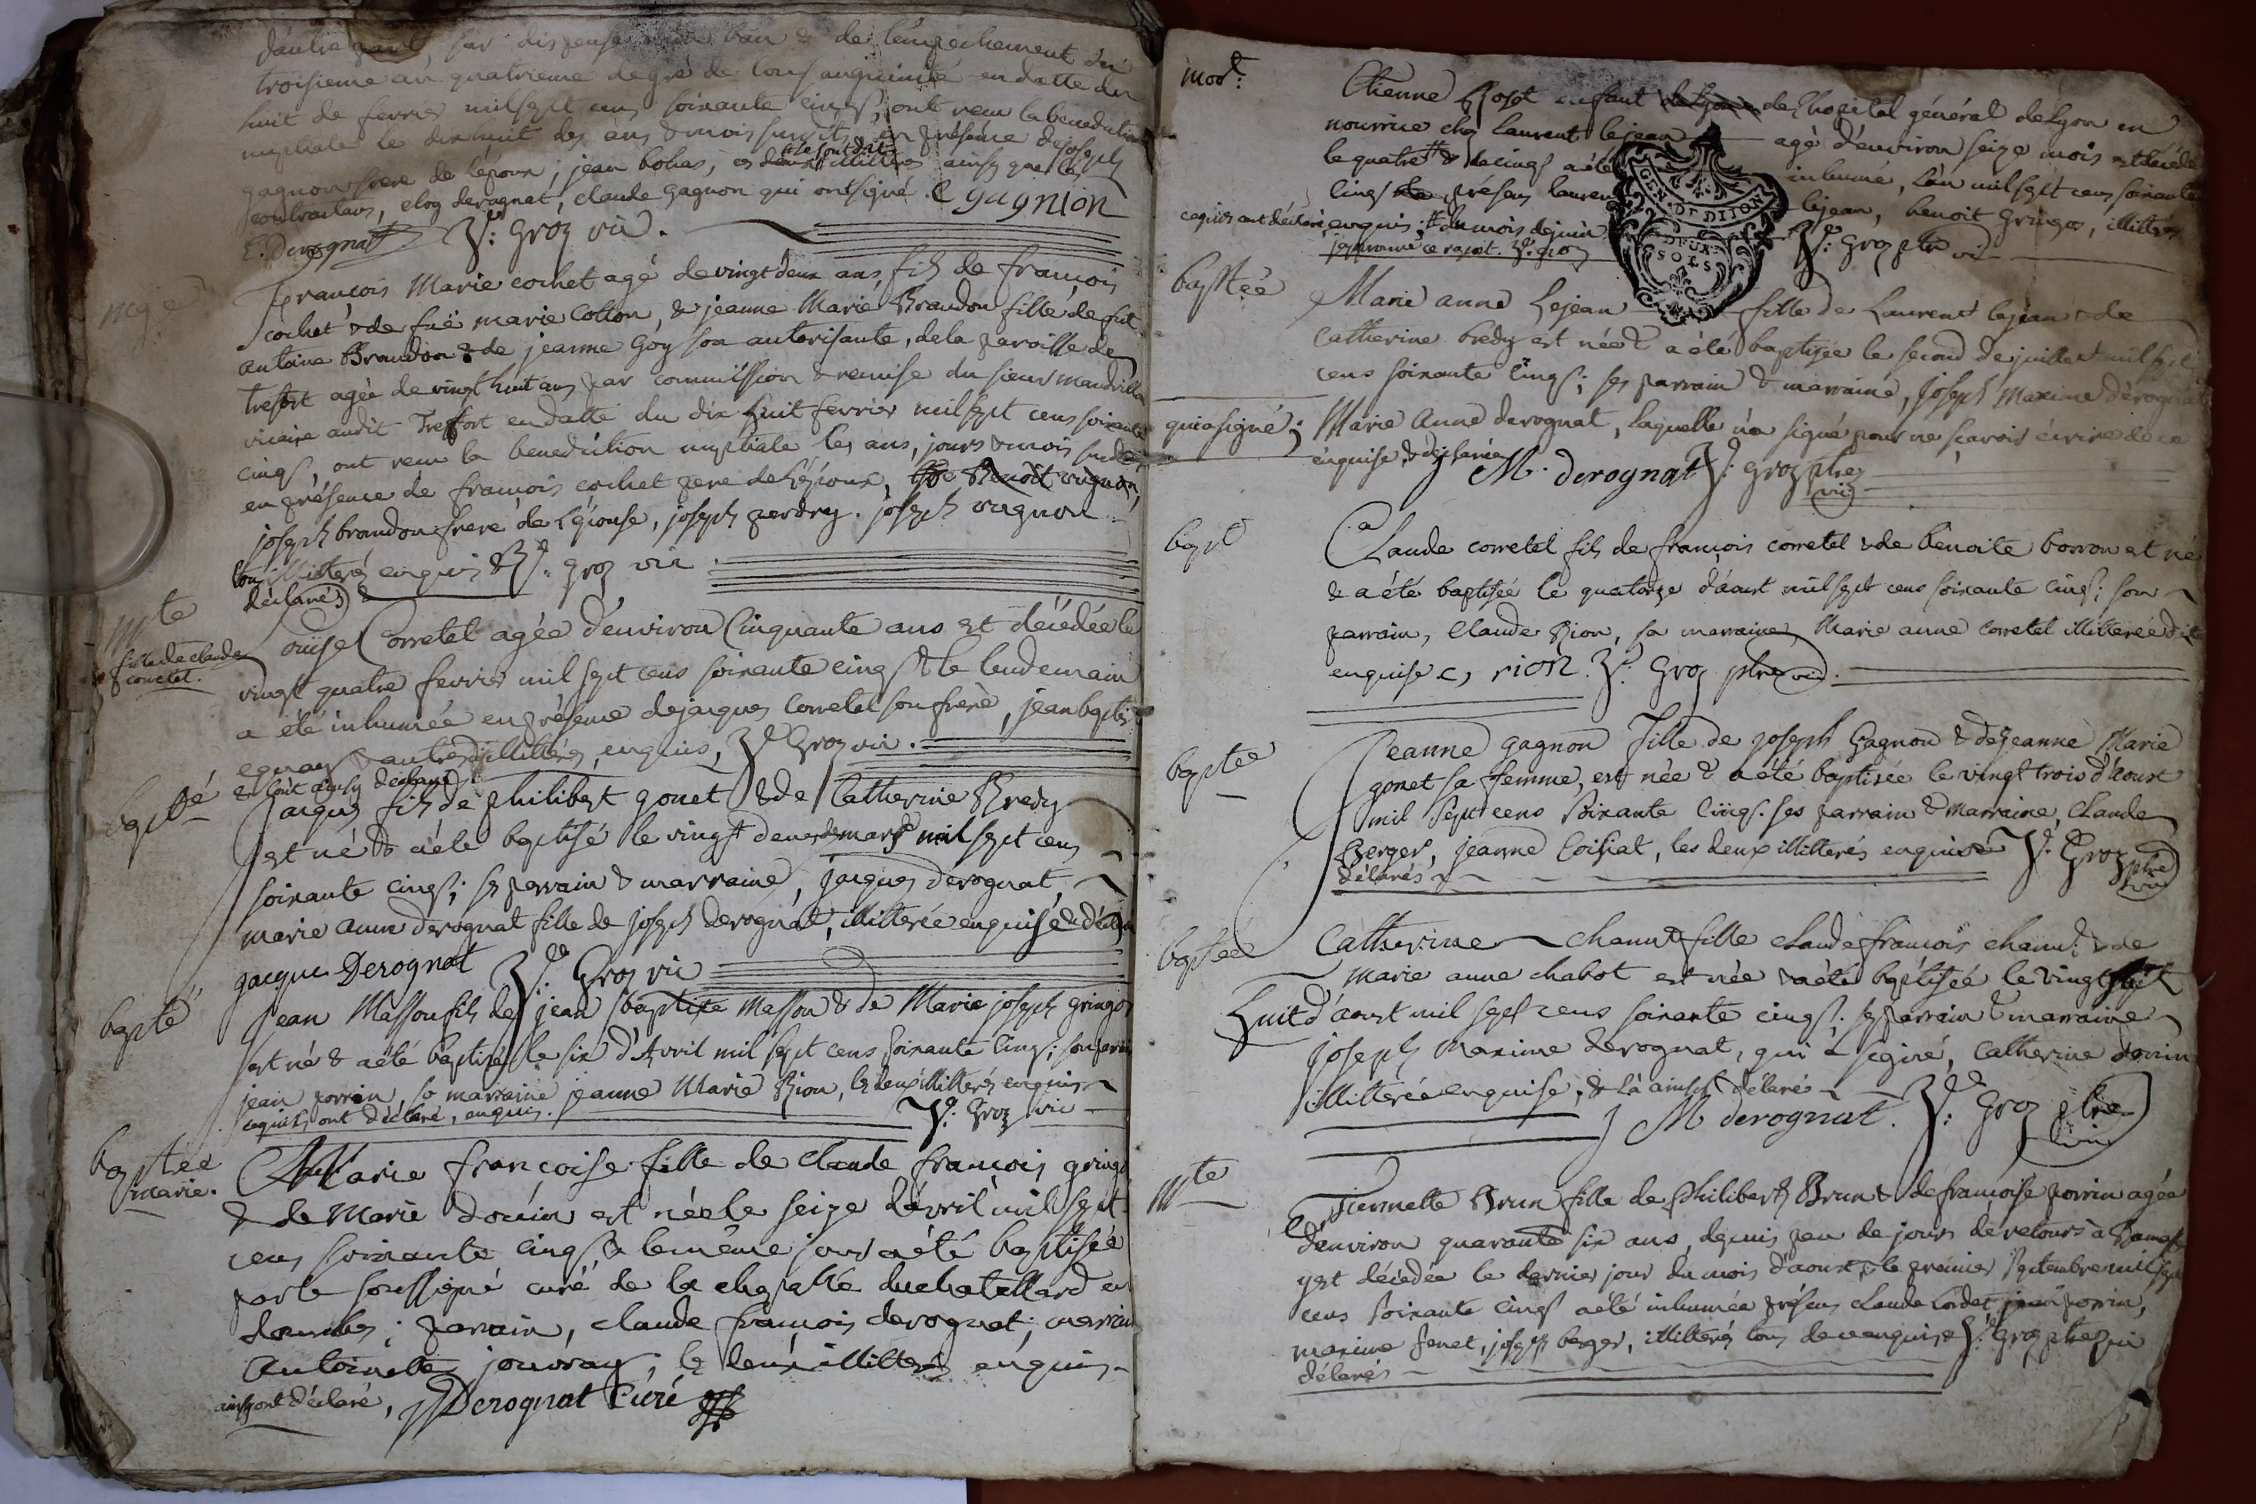 d'autre part, par dispense d'un ban & de l'empechement du
troisieme au quatrieme degré de consanguinité en datte du
huit de fevrier mil sept cens soixante cinq, ont recu la benediction
nuptiale le dix huit des ans & mois susdits en présence de joseph
gagnon frere de l'époux, jean bohas, ces deux illitteres ainsy que les
le sont dits
contractans, eloy derognat, claude gagnon qui ont signé. C gagnion
E. Derognat J. Groz vic.
mge
François Marie cochet agé de vingt deux ans, fils de françois
cochet & de fuë marie Cotton, & jeanne Marie Brandon fille de fut
antoine Brandon & de jeanne Goy son autorisante, de la paroisse de
Treffort agée de vingt huit ans par commission & remise du sieur mandrilla
vicaire audit Treffort en datte du dix huit fevrier mil sept cens soixante
cinq, ont recu la benediction nuptiale les ans, jours & mois susdits
en présence de francois cochet pere de l'époux, Benoit vugnon,
joseph brandon frere de l'épouse, joseph perdry. joseph vugnon
tous illitterés enquis & J. Groz vic.
déclarés
mte
fille de claude
corretel.
Louise Corretel agée d'environ Cinquante ans est décédée le
vingt quatre fevrier mil sept cens soixante cinq & le lendemain
a été inhumée en présence de jacques Corretel son frere, jean baptis
& autres illitterés, enquis, J. Groz vic.
& l'ont ainsy declaré
baptisé
Jacques fils de philibert gonet & de Catherine Bredy
est né & a été baptisé le vingt deux de mars mil sept cens
soixante cinq; ses parrain & marraine, jacques derognat,
marie anne derognat fille de joseph derognat, illitterée enquise & déclarée
jacques Derognat J. Groz vic
bapté
Jean Masson fils de jean baptiste Masson & de Marie joseph gringoz
est né & a été baptisé le six d'Avril mil sept cens soixante cinq; son parrain
jean porrin, sa marraine jeanne Marie Rion, les deux illitterés enquis
ce qu'ils ont déclaré, enquis. J. Groz vic
baptée
marie.
Marie françoise fille de claude françois gringoz
& de Marie doüin est née le seize d'avril mil sept
cens soixante cinq & le même jour a été baptisée
par le soussigné curé de la chapelle du chatellard en
dombes; parrain, claude françois derognat; marraine
Antoinette jouvray; les deux illitterés enquis
ainsy ont déclaré, JJ Derognat Curé
mort.
Etienne Rosot enfant de l'hopital général de Lyon en
nourrice chez laurent lejean agé d'environ seize mois est décédé
le quatre & le cinq a été inhumé, l'an mil sept cens soixante
cinq présens laurent lejean, benoit Gringoz, illitterés
ce qu'ils ont déclaré enquis; du mois de juin J. Groz ptre vic
j'approuve ce rajout. J. Groz
GEN. DE DIJON
DEUX
SOLS
baptée
Marie anne Lejean fille de Laurent lejean & de
Catherine bredy est née & a été baptisée le second de juillet mil sept
cens soixante cinq; ses parrain & marraine, joseph Maxime dérognat
qui a signé; Marie Anne derognat, laquelle n'a signé pour ne scavoir écrire de ce
enquise & déclarée J M. derognat J. Groz ptre
vic
bapt
Claude corretel fils de françois corretel & de benoite borron est né
& a été baptisée le quatorze d'aoust mil sept cens soixante cinq; son
parrain, Claude Rion, sa marraine Marie anne corretel illitterée dite
enquise C, rion. J. Groz ptre vic.
baptée
Jeanne gagnon fille de joseph Gagnon & de Jeanne Marie
gonet sa femme, est née & a été baptisée le vingt trois d'aoust
mil sept cens soixante cinq. ses parrain & marraine, claude
Berger, jeanne Coisiat, les deux illitterés enquis & J. Groz ptre
déclarés vic
baptée
Catherine chanut fille claude françois chanut & de
Marie anne chabot est née & a été baptisée le vingt
huit d'aoust mil sept cens soixante cinq; ses parrain & marraine
joseph Maxime derognat, qui a signé, Catherine donin
illitterée enquise, & l'a ainsy déclaré
J M derognat. J. Groz ptre
vic
mte
Pierrette Brun fille de philibert Brun & de françoise porrin agée
d'environ quarante six ans, depuis peu de jours de retour à
y est décédée le dernier jour du mois d'aoust, & le premier septembre mil sept
cens soixante cinq a été inhumée présens claude Cordet, jean porrin,
maxime fenet, joseph berger, illitterés tous de ce enquis & J. Groz ptre vic
déclarés